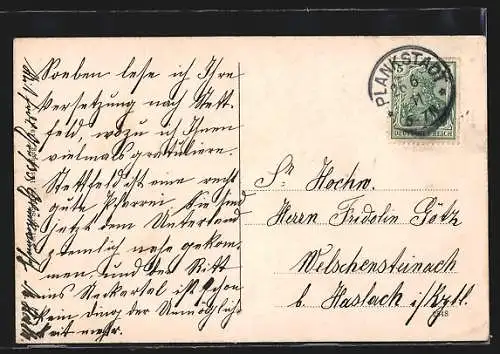 Soeben lese ich Ihre
Versetzung nach Stett-
feld, wozu ich Ihnen
vielmals gratuliere.
Stettfeld ist eine recht
gute Pfarrei. Sie sind
jetzt dem Unterland
ziemlich nahe gekom-
men, und der Ritt
ins Neckartal ist schon
kein Ding der Unmöglich-
keit mehr.
PLANKSTADT
DEUTSCHES REICH
Sr. Hochw.
Herrn Fridolin Götz
Welschensteinach
b. Haslach i/Kztl.